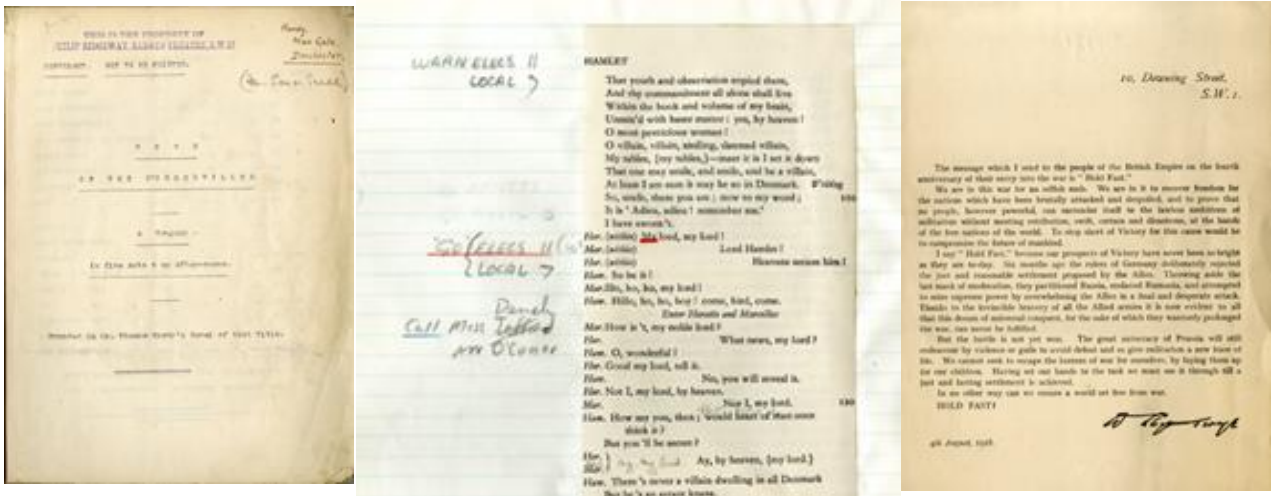 THIS IS THE PROPERTY OF
PHILIP RIDGEWAY, BARNES THEATRE, S.W.13
COPYRIGHT. NOT TO BE PRINTED.
Hardy,
Max Gate,
Dorchester,
TESS
OF THE D'URBERVILLES
A Tragedy
In five acts & an After-scene.
Founded on Mr. Thomas Hardy's Novel of that Title.
WARN ELECS 11
LOCAL 7
GO ELECS 11
LOCAL 7
Call Miss
Mr O'Conor
HAMLET
That youth and observation copied there,
And thy commandment all alone shall live
Within the book and volume of my brain,
Unmix'd with baser matter: yes, by heaven!
O most pernicious woman!
O villain, villain, smiling, damned villain,
My tables, [my tables,]—meet it is I set it down
That one may smile, and smile, and be a villain,
At least I am sure it may be so in Denmark.
So, uncle, there you are; now to my word;
It is 'Adieu, adieu! remember me.'
I have sworn't.
Hor. (within) My lord, my lord!
Mar. (within) Lord Hamlet!
Hor. (within) Heavens secure him!
Ham. So be it!
Mar. Illo, ho, ho, my lord!
Ham. Hillo, ho, ho, boy! come, bird, come.
Enter Horatio and Marcellus
Mar. How is't, my noble lord?
Hor. What news, my lord?
Ham. O, wonderful!
Hor. Good my lord, tell it.
Ham. No, you will reveal it.
Hor. Not I, my lord, by heaven.
Mar. Nor I, my lord. 120
Ham. How say you, then; would heart of man once
think it?
But you'll be secret?
Hor.
Mar. Ay, by heaven, [my lord.]
Ham. There's never a villain dwelling in all Denmark
But he's an arrant knave.
10, Downing Street,
S.W.1.
The message which I send to the people of the British Empire on the fourth
anniversary of their entry into the war is "Hold Fast."
We are in this war for no selfish ends. We are in it to recover freedom for
the nations which have been brutally attacked and despoiled, and to prove that
no people, however powerful, can surrender itself to the lawless ambitions of
militarism without meeting retribution, swift, certain and disastrous, at the hands
of the free nations of the world. To stop short of Victory for this cause would be
to compromise the future of mankind.
I say "Hold Fast," because our prospects of Victory have never been so bright
as they are to-day. Six months ago the rulers of Germany deliberately rejected
the just and reasonable settlement proposed by the Allies. Throwing aside the
last mask of moderation, they partitioned Russia, enslaved Rumania, and attempted
to seize supreme power by overwhelming the Allies in a final and desperate attack.
Thanks to the invincible bravery of all the Allied armies it is now evident to all
that this dream of universal conquest, for the sake of which they wantonly prolonged
the war, can never be fulfilled.
But the battle is not yet won. The great autocracy of Prussia will still
endeavour by violence or guile to avoid defeat and so give militarism a new lease of
life. We cannot seek to escape the horrors of war for ourselves, by laying them up
for our children. Having set our hands to the task we must see it through till a
just and lasting settlement is achieved.
In no other way can we ensure a world set free from war.
HOLD FAST!
4th August, 1918.